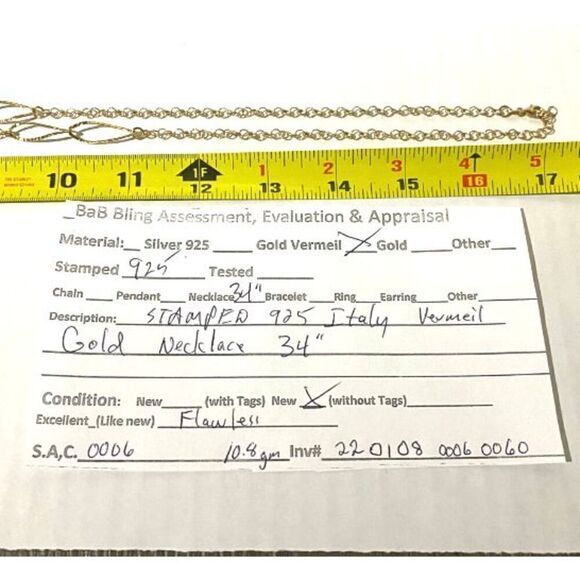 1 2 3 4 5
10 11 1F 12 13 14 15 16 17
_BaB Bling Assessment, Evaluation & Appraisal
Material:__ Silver 925 ____ Gold Vermeil X Gold ____ Other___
Stamped 925 Tested ______
Chain ___ Pendant____ Necklace 34" Bracelet ____ Ring___ Earring ___ Other____
Description: STAMPED 925 Italy Vermeil
Gold Necklace 34"
Condition: New_____ (with Tags) New X (without Tags)________
Excellent_(Like new) __Flawless
S.A,C. 0006 10.8gm Inv# 220108 0006 0060